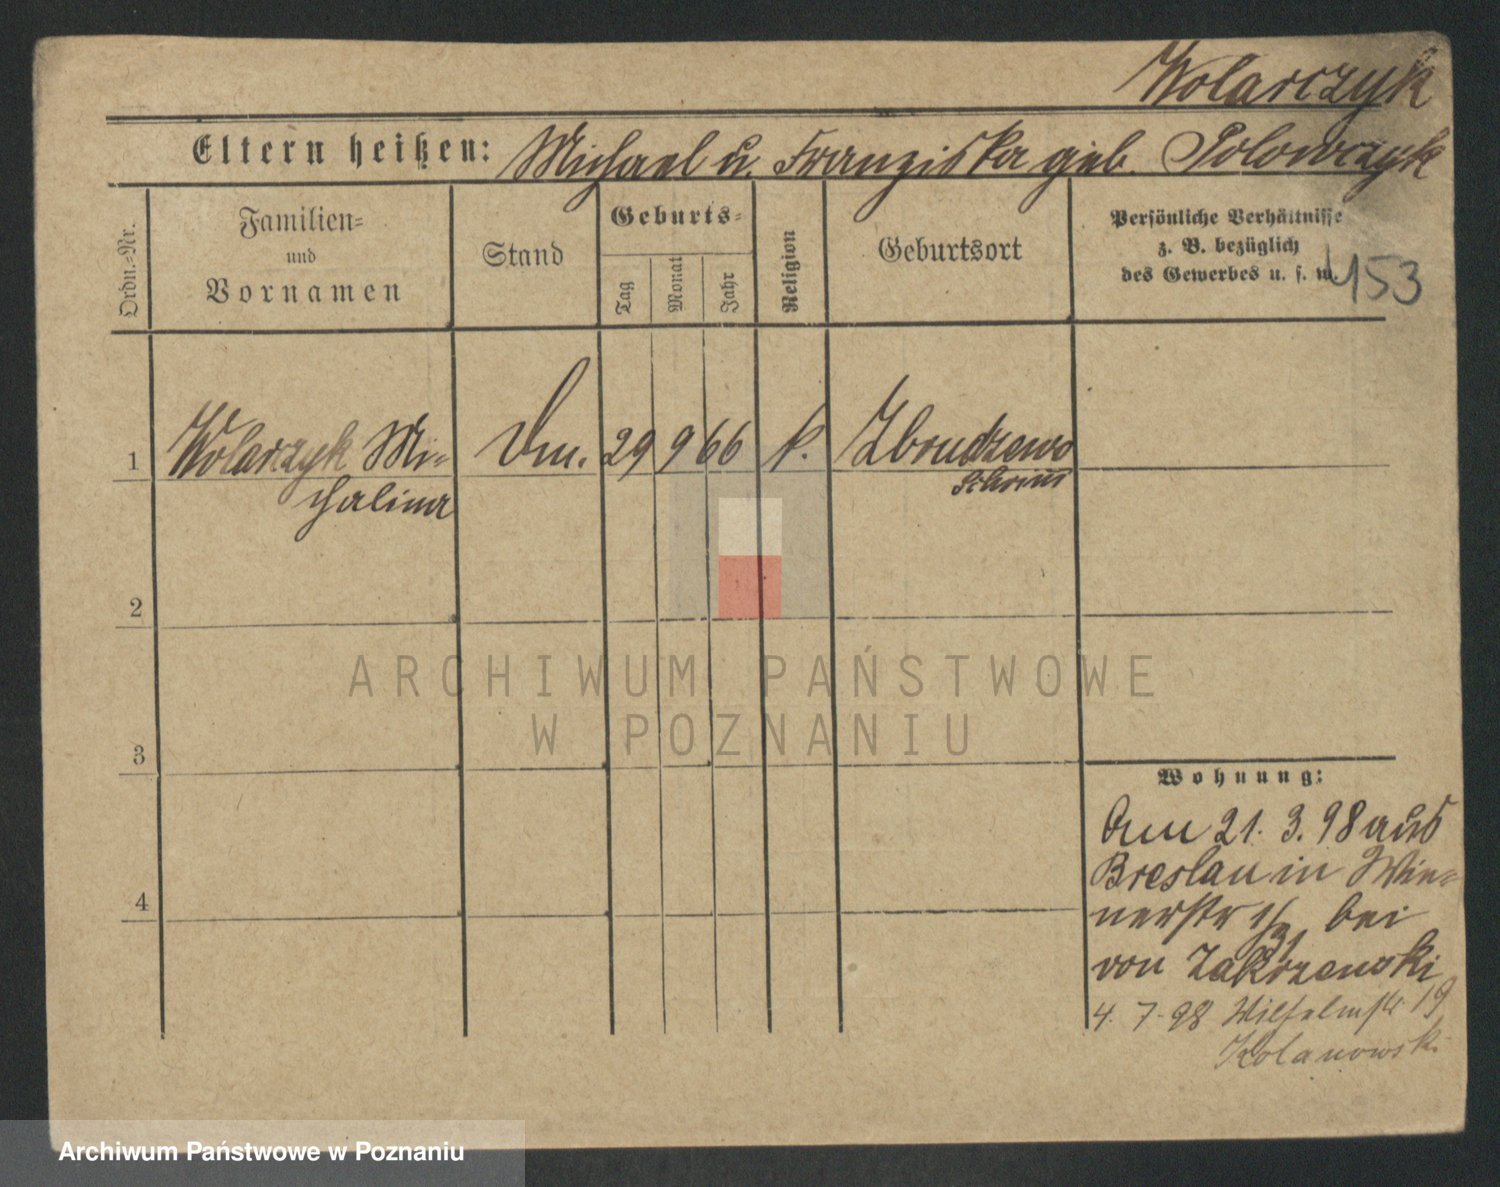 Wolarczyk
Eltern heißen: Michael u. Franziska geb. Polowczyk
Ordn.-Nr.
Familien-
und
Vornamen
Stand
Geburts-
Tag
Monat
Jahr
Religion
Geburtsort
Persönliche Verhältnisse
z. B. bezüglich
des Gewerbes u. s. w.
453
1 Wolarczyk Mi- 29 9 66 k. Zbrudzewo
chalina Schrimm
2
ARCHIWUM PAŃSTWOWE
W POZNANIU
3
Wohnung:
Am 21. 3. 98 aus
Breslau in Wie-
nerstr bei
von Zakrzewski
4
4. 7. 98 Wilhelmstr 19
Kolanowski
Archiwum Państwowe w Poznaniu